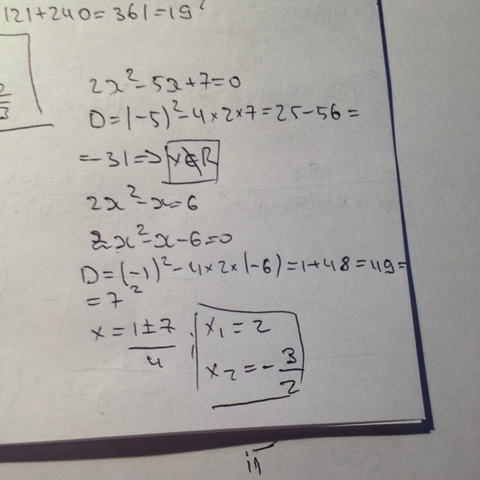 121+240=361=19²
2
3
2x²-5x+7=0
D=(-5)²-4×2×7=25-56=
=-31=>x∉R
2x²-x=6
2x²-x-6=0
D=(-1)²-4×2×(-6)=1+48=49=
=7²
x=1±7/4; x₁=2
x₂=-3/2